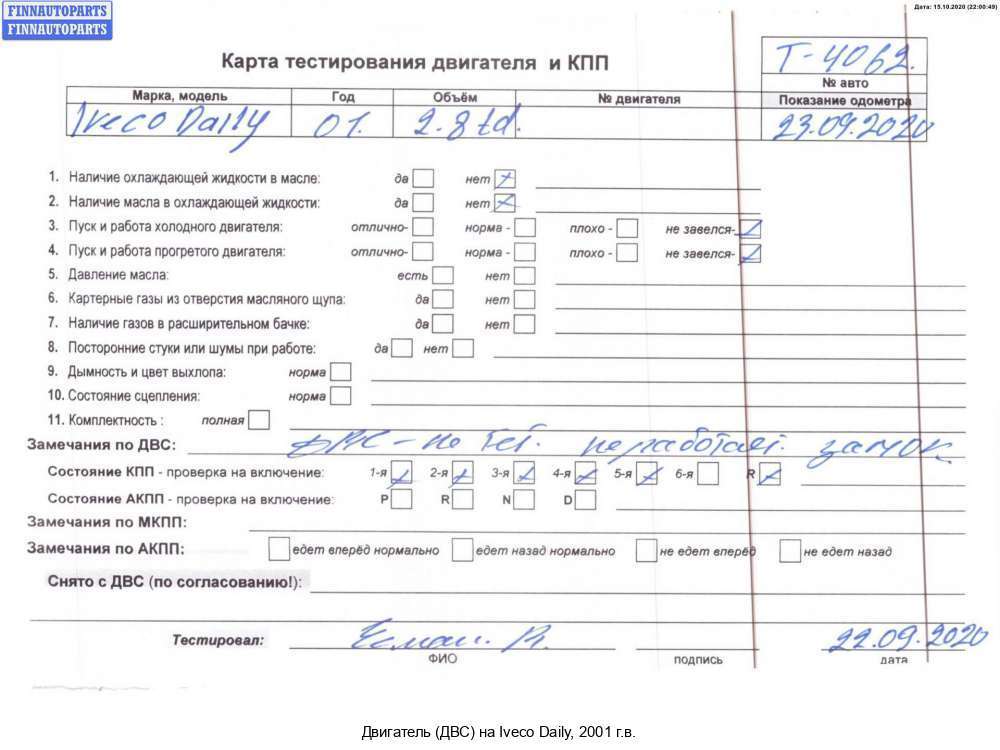 FINNAUTOPARTS
FINNAUTOPARTS
Дата: 15.10.2020 (22:00:49)
Карта тестирования двигателя и КПП
T-4062.
№ авто
Марка, модель Год Объём № двигателя Показание одометра
Iveco Daily 01. 2.8td. 23.09.2020
1. Наличие охлаждающей жидкости в масле: да нет
2. Наличие масла в охлаждающей жидкости: да нет
3. Пуск и работа холодного двигателя: отлично- норма - плохо - не завелся-
4. Пуск и работа прогретого двигателя: отлично- норма - плохо - не завелся-
5. Давление масла: есть нет
6. Картерные газы из отверстия масляного щупа: да нет
7. Наличие газов в расширительном бачке: да нет
8. Посторонние стуки или шумы при работе: да нет
9. Дымность и цвет выхлопа: норма
10. Состояние сцепления: норма
11. Комплектность : полная
Замечания по ДВС: ДВС - не тест. не работает замок
Состояние КПП - проверка на включение: 1-я 2-я 3-я 4-я 5-я 6-я R
Состояние АКПП - проверка на включение: P R N D
Замечания по МКПП:
Замечания по АКПП: едет вперёд нормально едет назад нормально не едет вперёд не едет назад
Снято с ДВС (по согласованию!):
Тестировал: 22.09.2020
ФИО подпись дата
Двигатель (ДВС) на Iveco Daily, 2001 г.в.